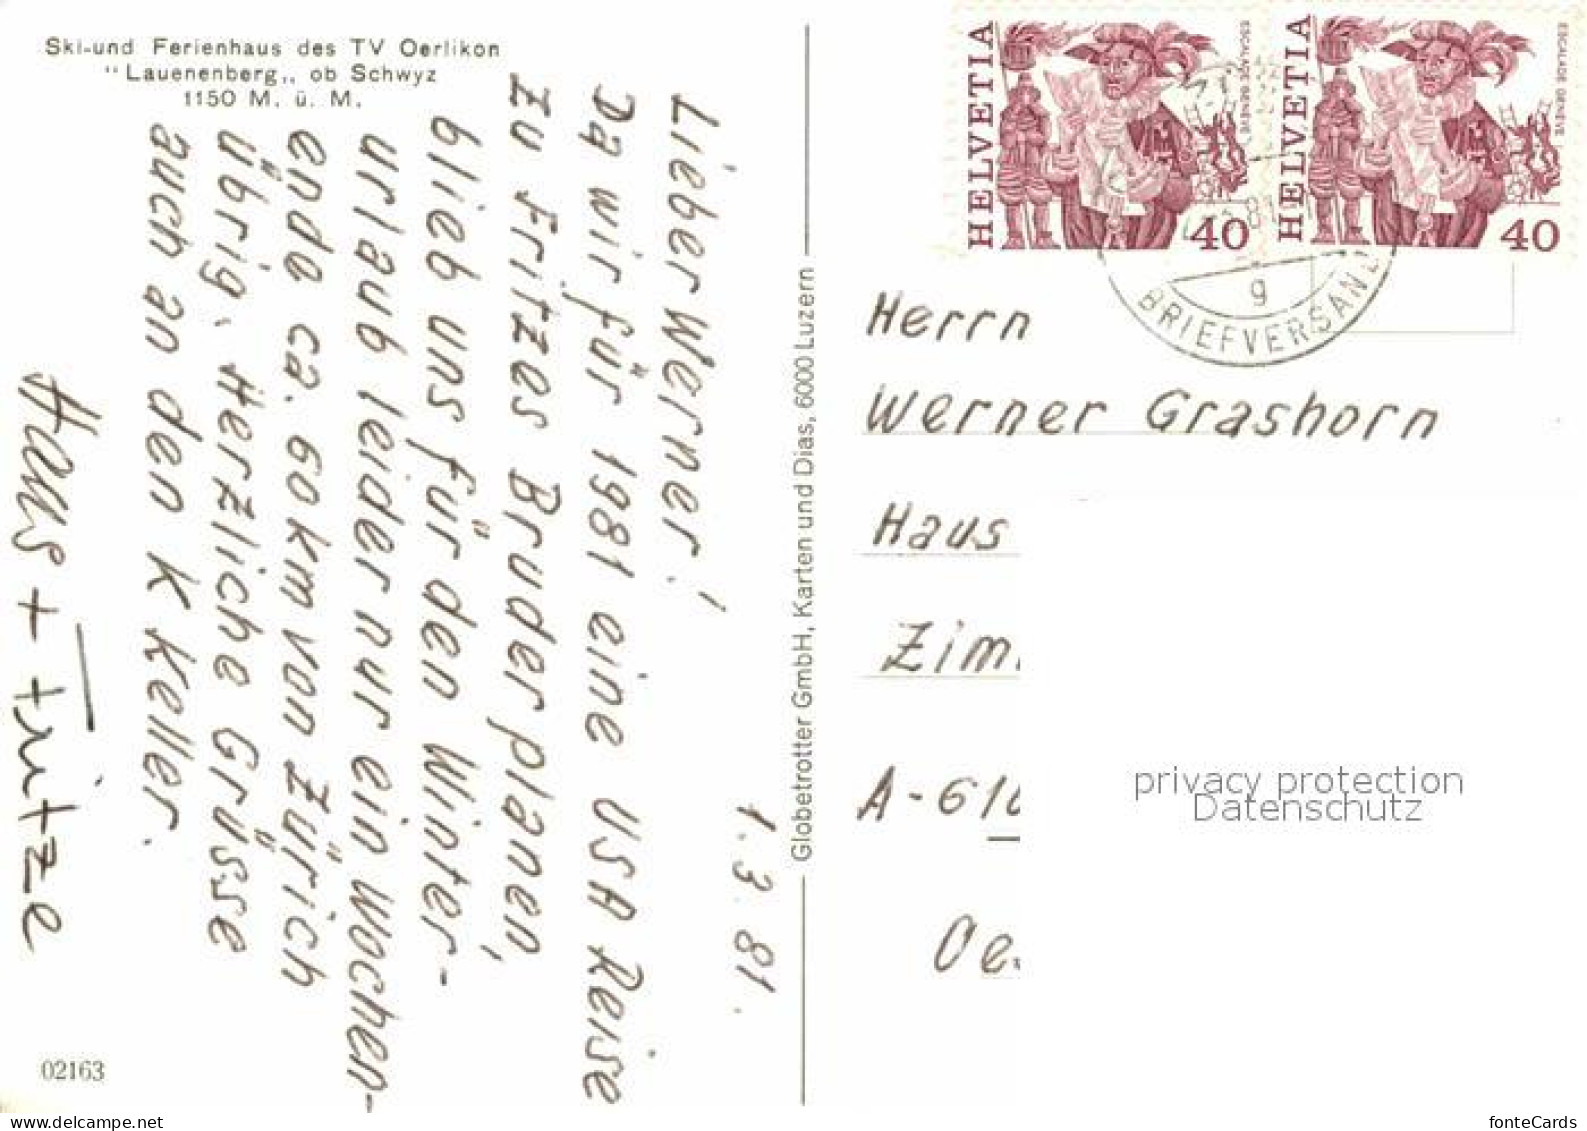 Ski-und Ferienhaus des TV Oerlikon
"Lauenenberg„ ob Schwyz
1150 M. ü. M.
1.3.81.
Lieber Werner!
Da wir für 1981 eine USA Reise
zu Fritzes Bruder planen,
blieb uns für den Winter-
urlaub leider nur ein Wochen-
ende ca. 60 km von Zürich
übrig. Herzliche Grüsse
auch an den K Keller.
Hans + Fritze
02163
Globetrotter GmbH, Karten und Dias, 6000 Luzern
HELVETIA
ESCALADE GENÈVE
40
HELVETIA
ESCALADE GENÈVE
40
81
9
BRIEFVERSAND
Herrn
Werner Grashorn
Haus
Zim
A-61
Oe
privacy protection
Datenschutz
www.delcampe.net
fonteCards